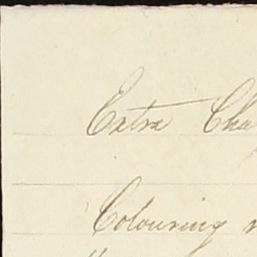 Extra Cha
Colouring